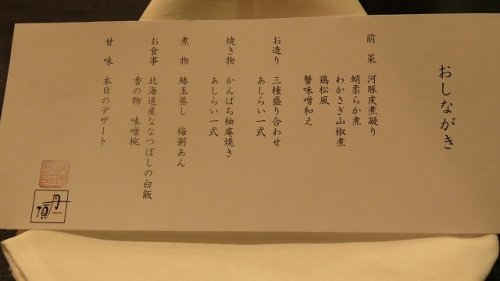 おしながき
前菜 河豚皮煮凝り
蛸柔らか煮
わかさぎ山椒煮
鶏松風
蟹味噌和え
お造り 三種盛り合わせ
あしらい一式
焼き物 かんぱち柚庵焼き
あしらい一式
煮物 鰆玉蒸し 梅粥あん
お食事 北海道産ななつぼしの白飯
香の物 味噌椀
甘味 本日のデザート
丹頂